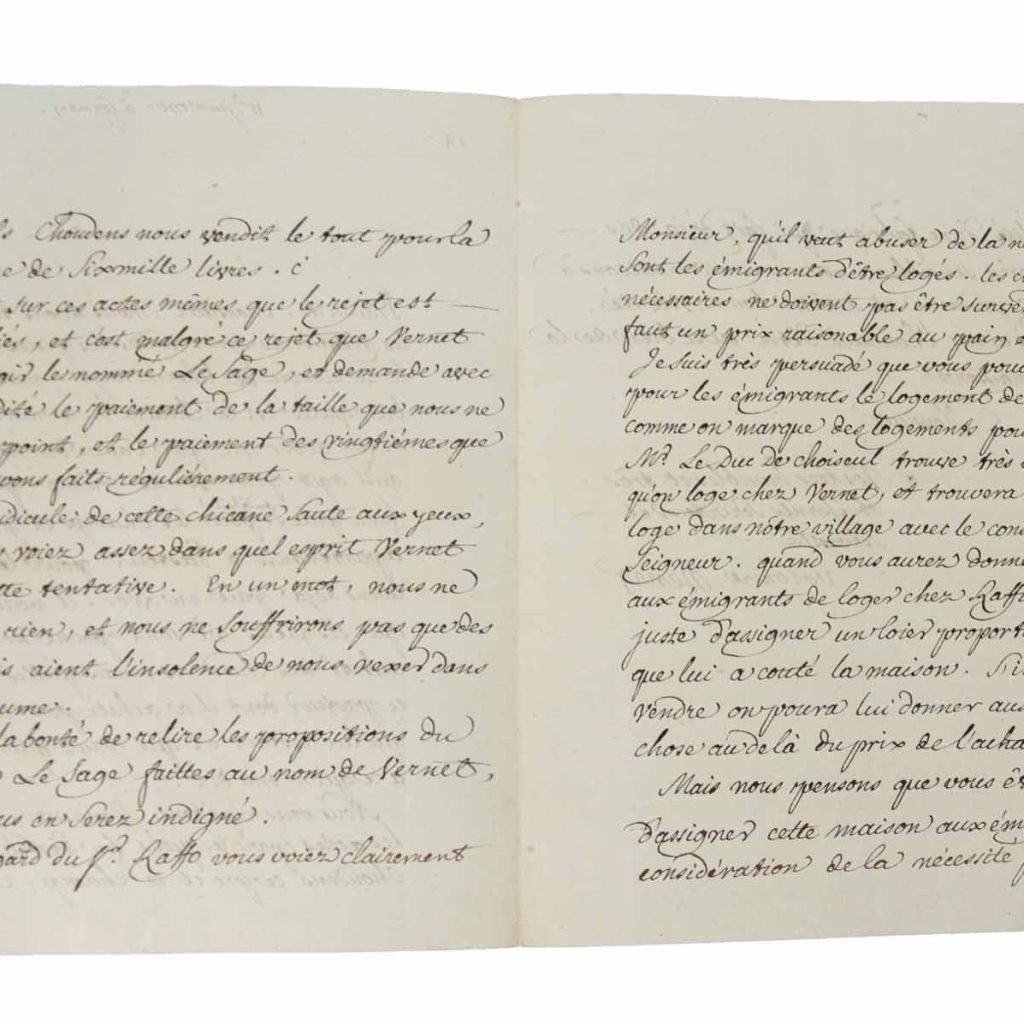 Choudens nous vendit le tout pour la
de Sixmille livres. c'
sur ces actes mêmes que le rejet est
et c'est malgré ce rejet que Vernet
le nommé Le Sage, et demande avec
le paiement de la taille que nous ne
point, et le paiement des vingtiémes que
vons faits réguliérement.
idicule de cette chicane Saute aux yeux,
voiez assez dans quel esprit Vernet
tte tentative. En un mot, nous ne
rien, et nous ne Souffrirons pas que des
aient l'insolence de nous vexer dans
ume.
la bonté de relire les propositions du
Le Sage faittes au nom de Vernet,
us en Serez indigné.
gard du Sr. Raffo vous voiez clairement
Monsieur, qu'il veut abuser de la n
Sont les émigrants d'être logés. les c
nécessaires ne doivent pas être Surve
faut un prix raisonable au pain e
Je suis très persuadé que vous pouv
pour les émigrants le logement de
comme on marque des logements pou
Mr. Le Duc De choiseul trouve très
qu'on loge chez Vernet, et trouvera
loge dans nôtre village avec le cons
Seigneur. quand vous aurez donné
aux émigrants de loger chez Raffo
juste d'assigner un loier proport
que lui a couté la maison. S'il
vendre on poura lui donner aus
chose au delà du prix de l'acha
Mais nous pensons que vous ê
d'assigner cette maison aux émi
considération de la nécessité